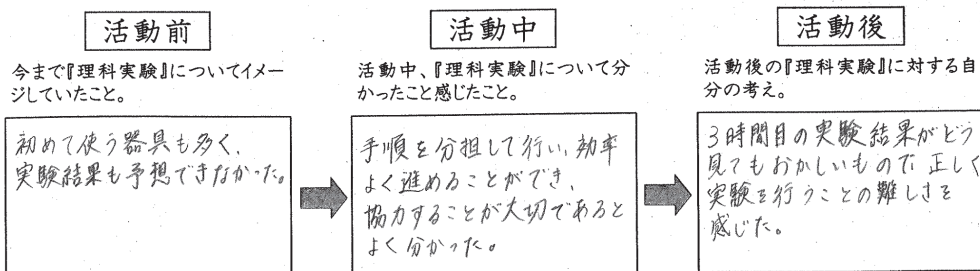 活動前
今まで『理科実験』についてイメー
ジしていたこと。
初めて使う器具も多く、
実験結果も予想できなかった。
活動中
活動中、『理科実験』について分
かったこと感じたこと。
手順を分担して行い、効率
よく進めることができ、
協力することが大切であると
よく分かった。
活動後
活動後の『理科実験』に対する自
分の考え。
3時間目の実験結果がどう
見てもおかしいもので正しく
実験を行うことの難しさを
感じた。